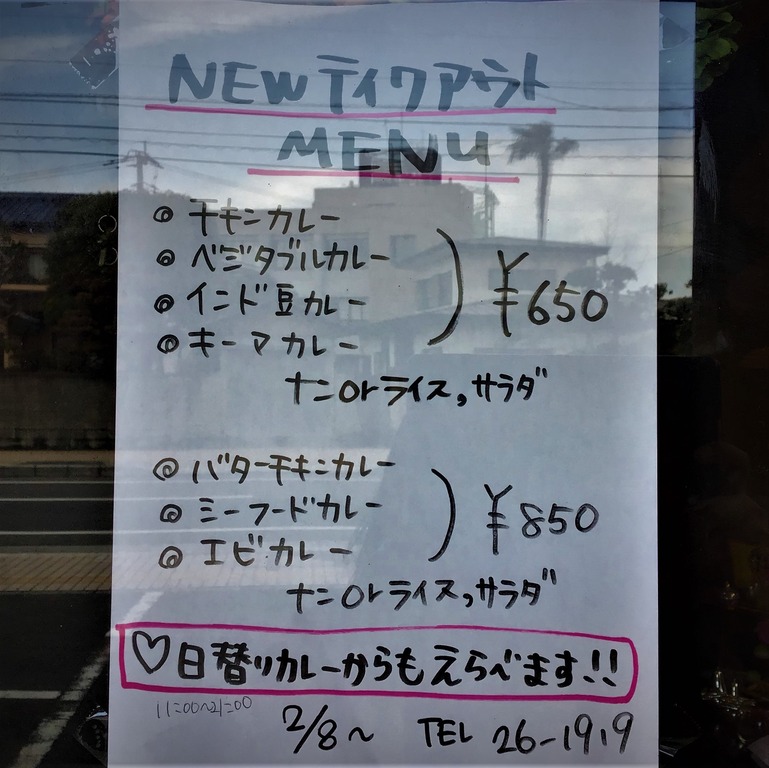 NEWティクアウト
MENU
◎ チキンカレー
◎ ベジタブルカレー
◎ インド豆カレー
◎ キーマカレー
) ¥650
ナニorライス,サラダ
◎ バターチキンカレー
◎ ミーフードカレー
◎ エビカレー
) ¥850
ナニorライス,サラダ
♡日替りカレーからもえらべます!!
11:00~21:00
2/8~ TEL 26-1919